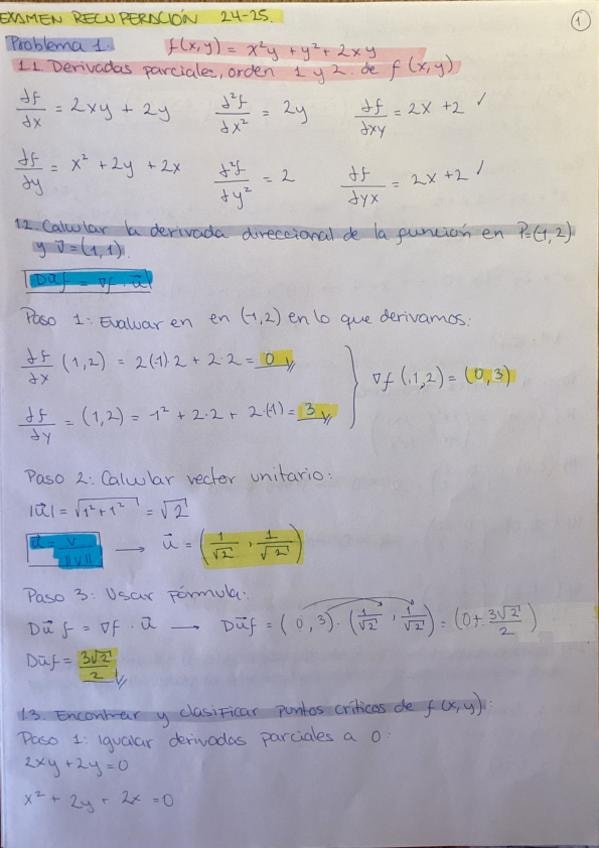 EXAMEN RECUPERACIÓN 24-25.
1
Problema 1. f(x,y) = x²y + y² + 2xy
1.1. Derivadas parciales, orden 1 y 2. de f(x,y)
∂f/∂x = 2xy + 2y ∂²f/∂x² = 2y ∂f/∂xy = 2x + 2 ✓
∂f/∂y = x² + 2y + 2x ∂²f/∂y² = 2 ∂f/∂yx = 2x + 2 ✓
1.2. Calcular la derivada direccional de la función en P=(-1,2)
y v⃗ = (1,1).
Du⃗f = ∇f · u⃗
Paso 1: Evaluar en en (-1,2) en lo que derivamos:
∂f/∂x (1,2) = 2(-1)·2 + 2·2 = 0
∇f(-1,2) = (0,3)
∂f/∂y = (1,2) = -1² + 2·2 + 2·(-1) = 3
Paso 2: Calcular vector unitario:
|u⃗| = √(1²+1²) = √2
u⃗ = v/||v|| → u⃗ = (1/√2, 1/√2)
Paso 3: Usar fórmula:
Du⃗ f = ∇f · u⃗ → Du⃗f = (0,3)·(1/√2, 1/√2) = (0 + 3√2/2)
Du⃗f = 3√2/2
1.3. Encontrar y clasificar puntos críticos de f(x,y):
Paso 1: Igualar derivadas parciales a 0:
2xy + 2y = 0
x² + 2y + 2x = 0